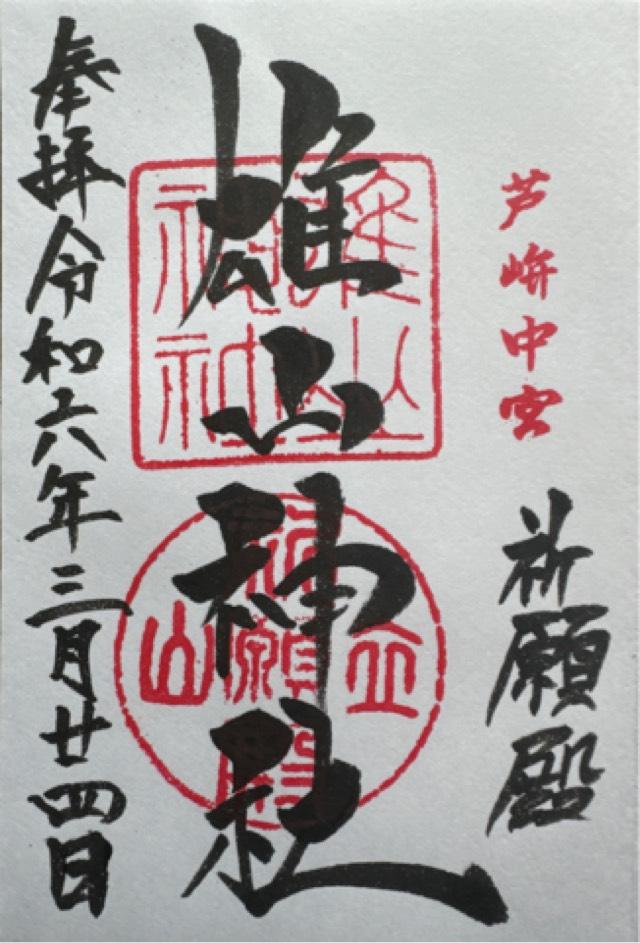 芦峅中宮
祈願殿
雄山神社
雄山
神社
立山
祈願殿
奉拝 令和六年三月廿四日